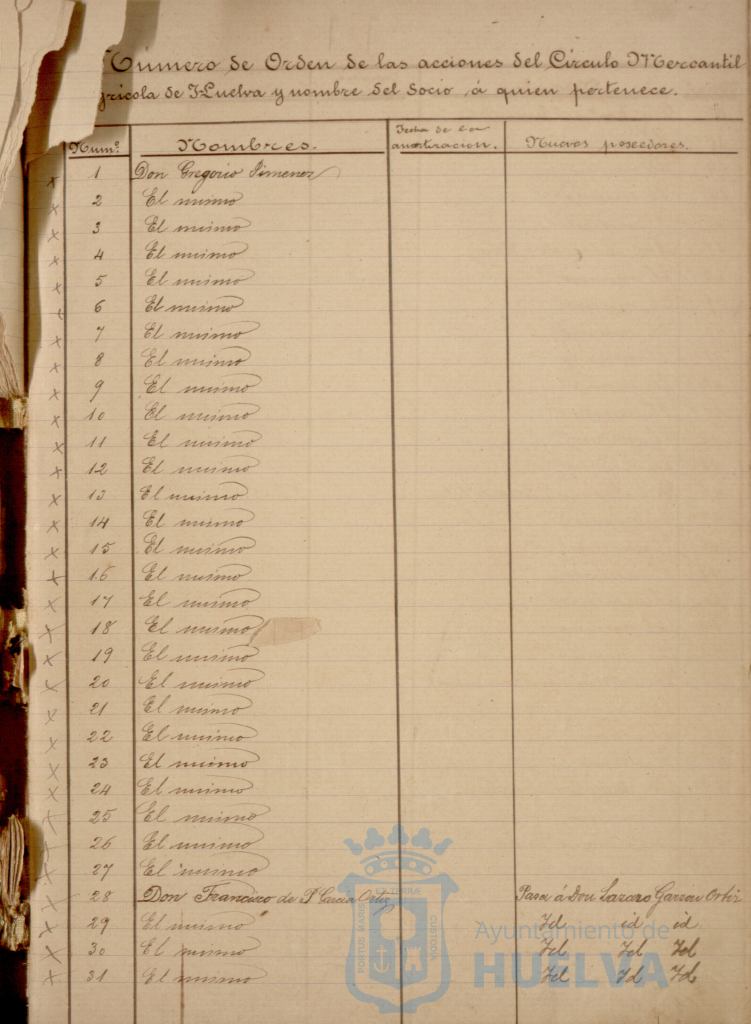 Número de Orden de las acciones del Círculo Mercantil
grícola de Huelva y nombre del socio á quien pertenece.
Numº. Nombres. Fecha de la amortizacion. Nuevos poseedores.
x 1 Don Gregorio Jimenez
x 2 El mismo
x 3 El mismo
x 4 El mismo
x 5 El mismo
x 6 El mismo
x 7 El mismo
x 8 El mismo
x 9 El mismo
x 10 El mismo
x 11 El mismo
x 12 El mismo
x 13 El mismo
x 14 El mismo
x 15 El mismo
x 16 El mismo
x 17 El mismo
x 18 El mismo
x 19 El mismo
x 20 El mismo
x 21 El mismo
x 22 El mismo
x 23 El mismo
x 24 El mismo
x 25 El mismo
x 26 El mismo
x 27 El mismo
x 28 Don Francisco de P. Garcia Ortiz Pasa á Don Lazaro Ortiz
x 29 El mismo Id id id
x 30 El mismo Id Id Id
x 31 El mismo Id Id Id
PORTUS MARIS ET TERRAE CUSTODIA
Ayuntamiento de
HUELVA